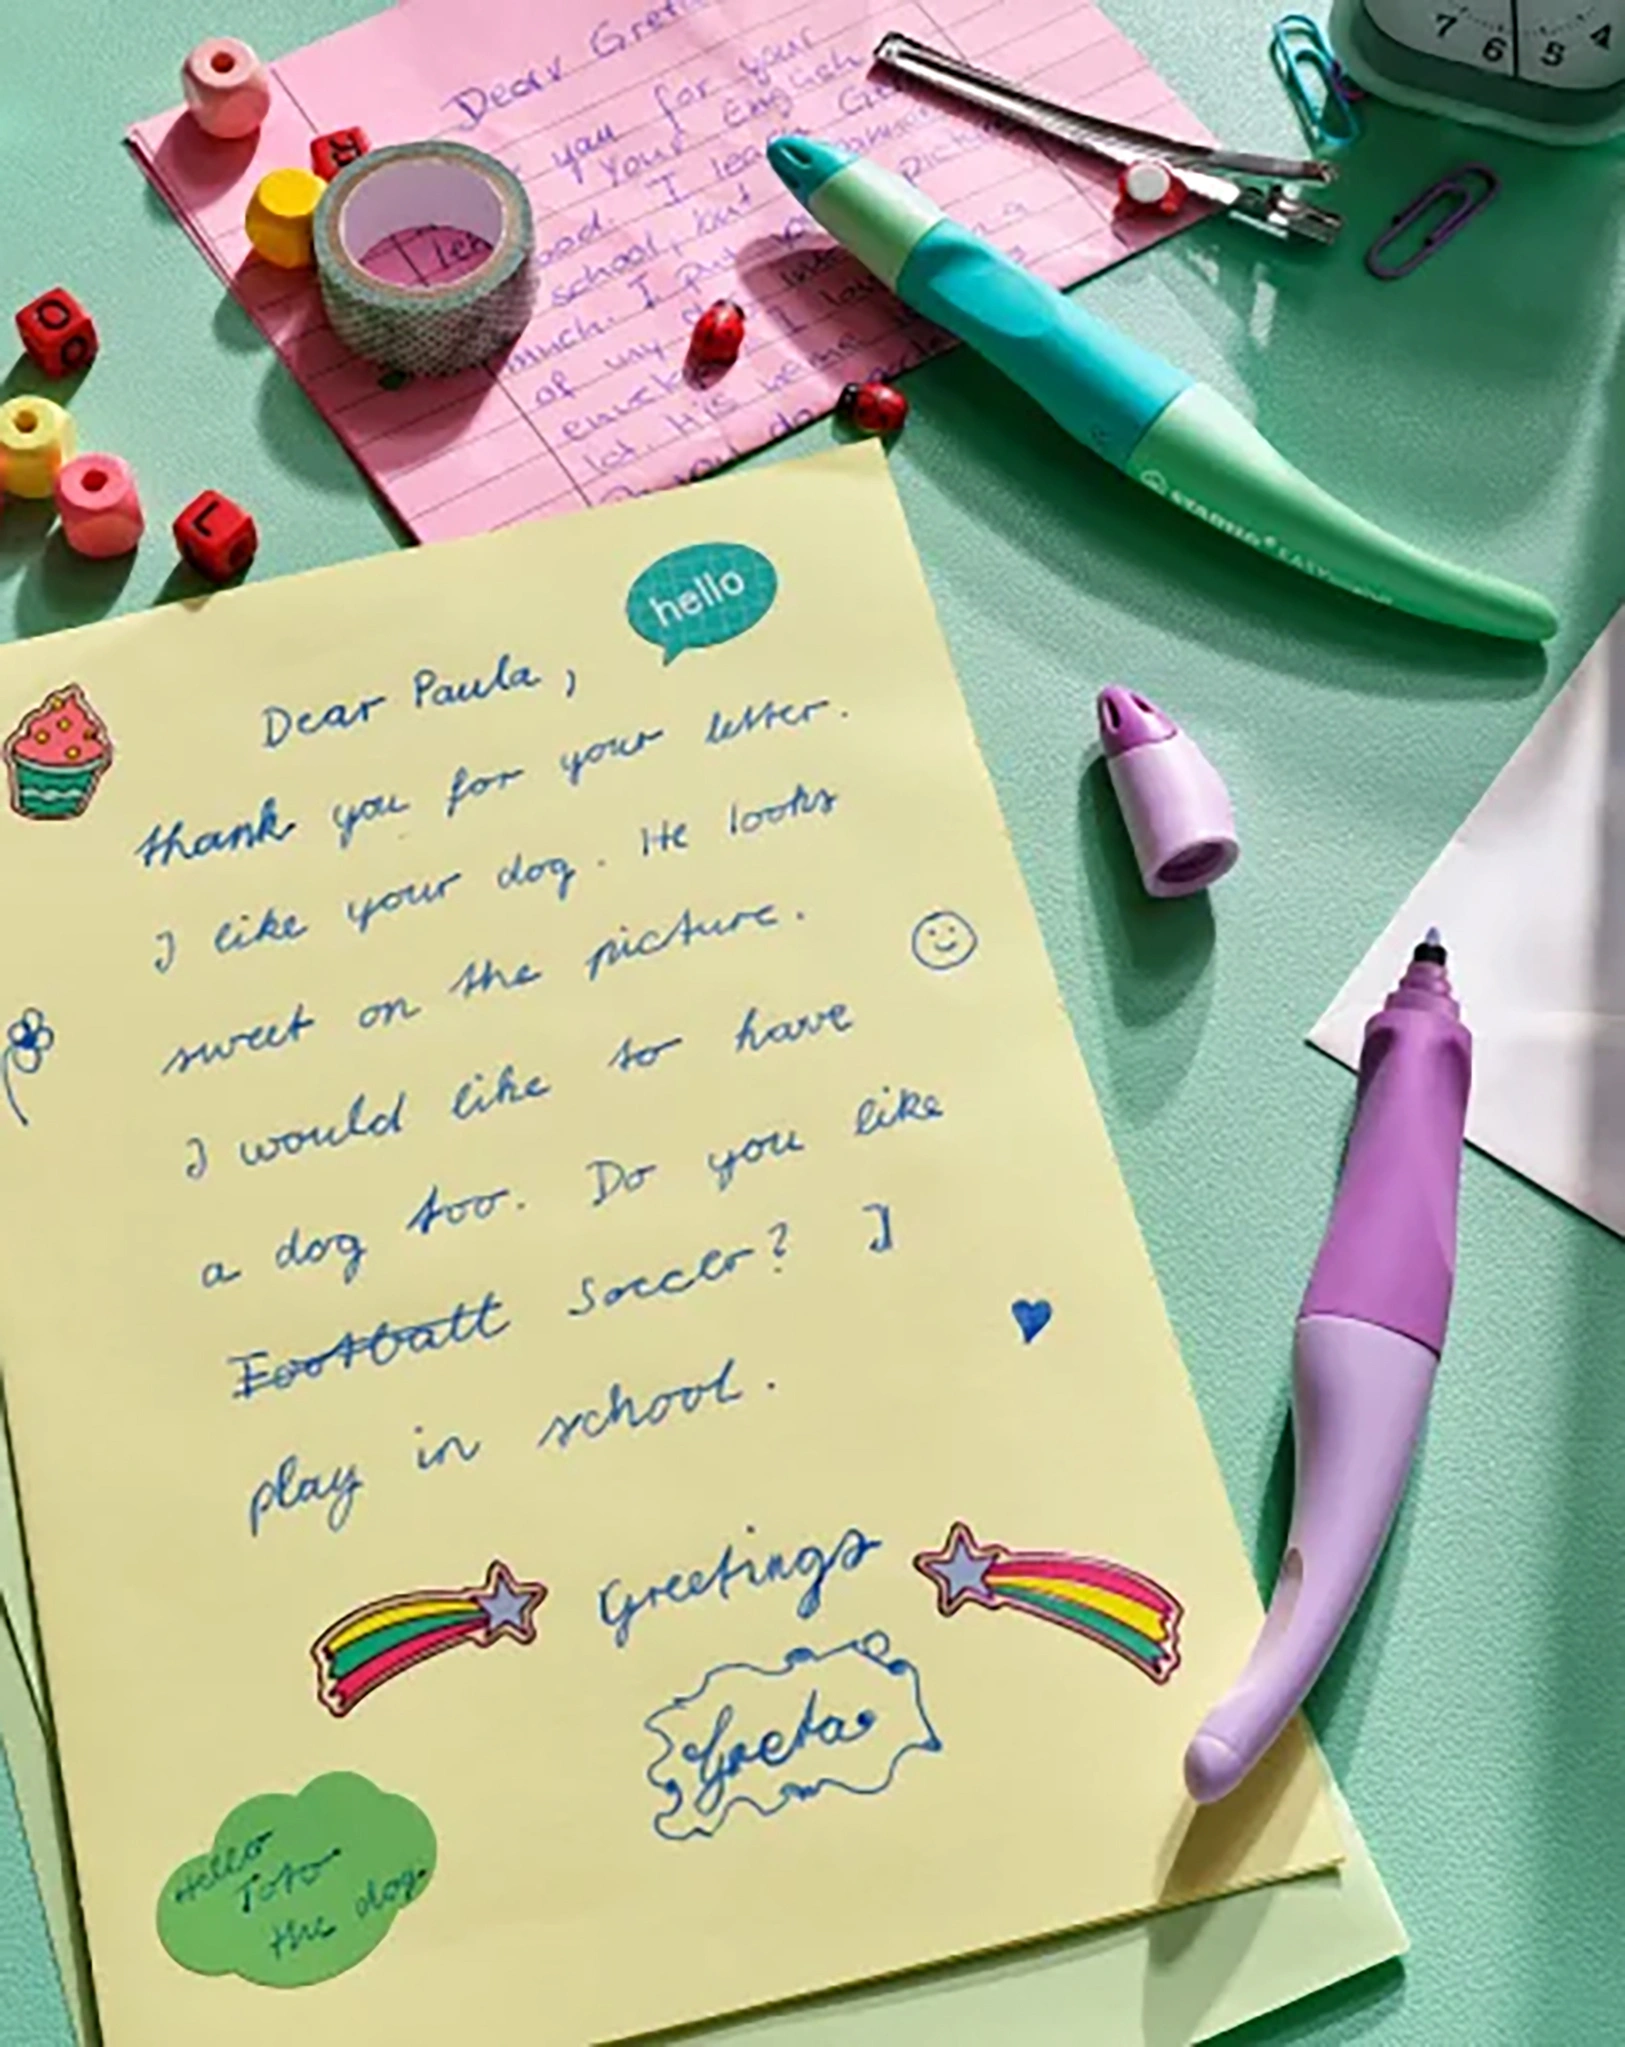 7 6 5 4
Dear Greta
you for your
Your English
I lea
school, but
pictur
much. I pu
of my
I lo
lot.
you do
O
L
STABILO® EASY
hello
Dear Paula,
thank you for your letter.
I like your dog. He looks
sweet on the picture.
I would like to have
a dog too. Do you like
Football Soccer? I
play in school.
Greetings
Greta
Hello
Toto
the dog.